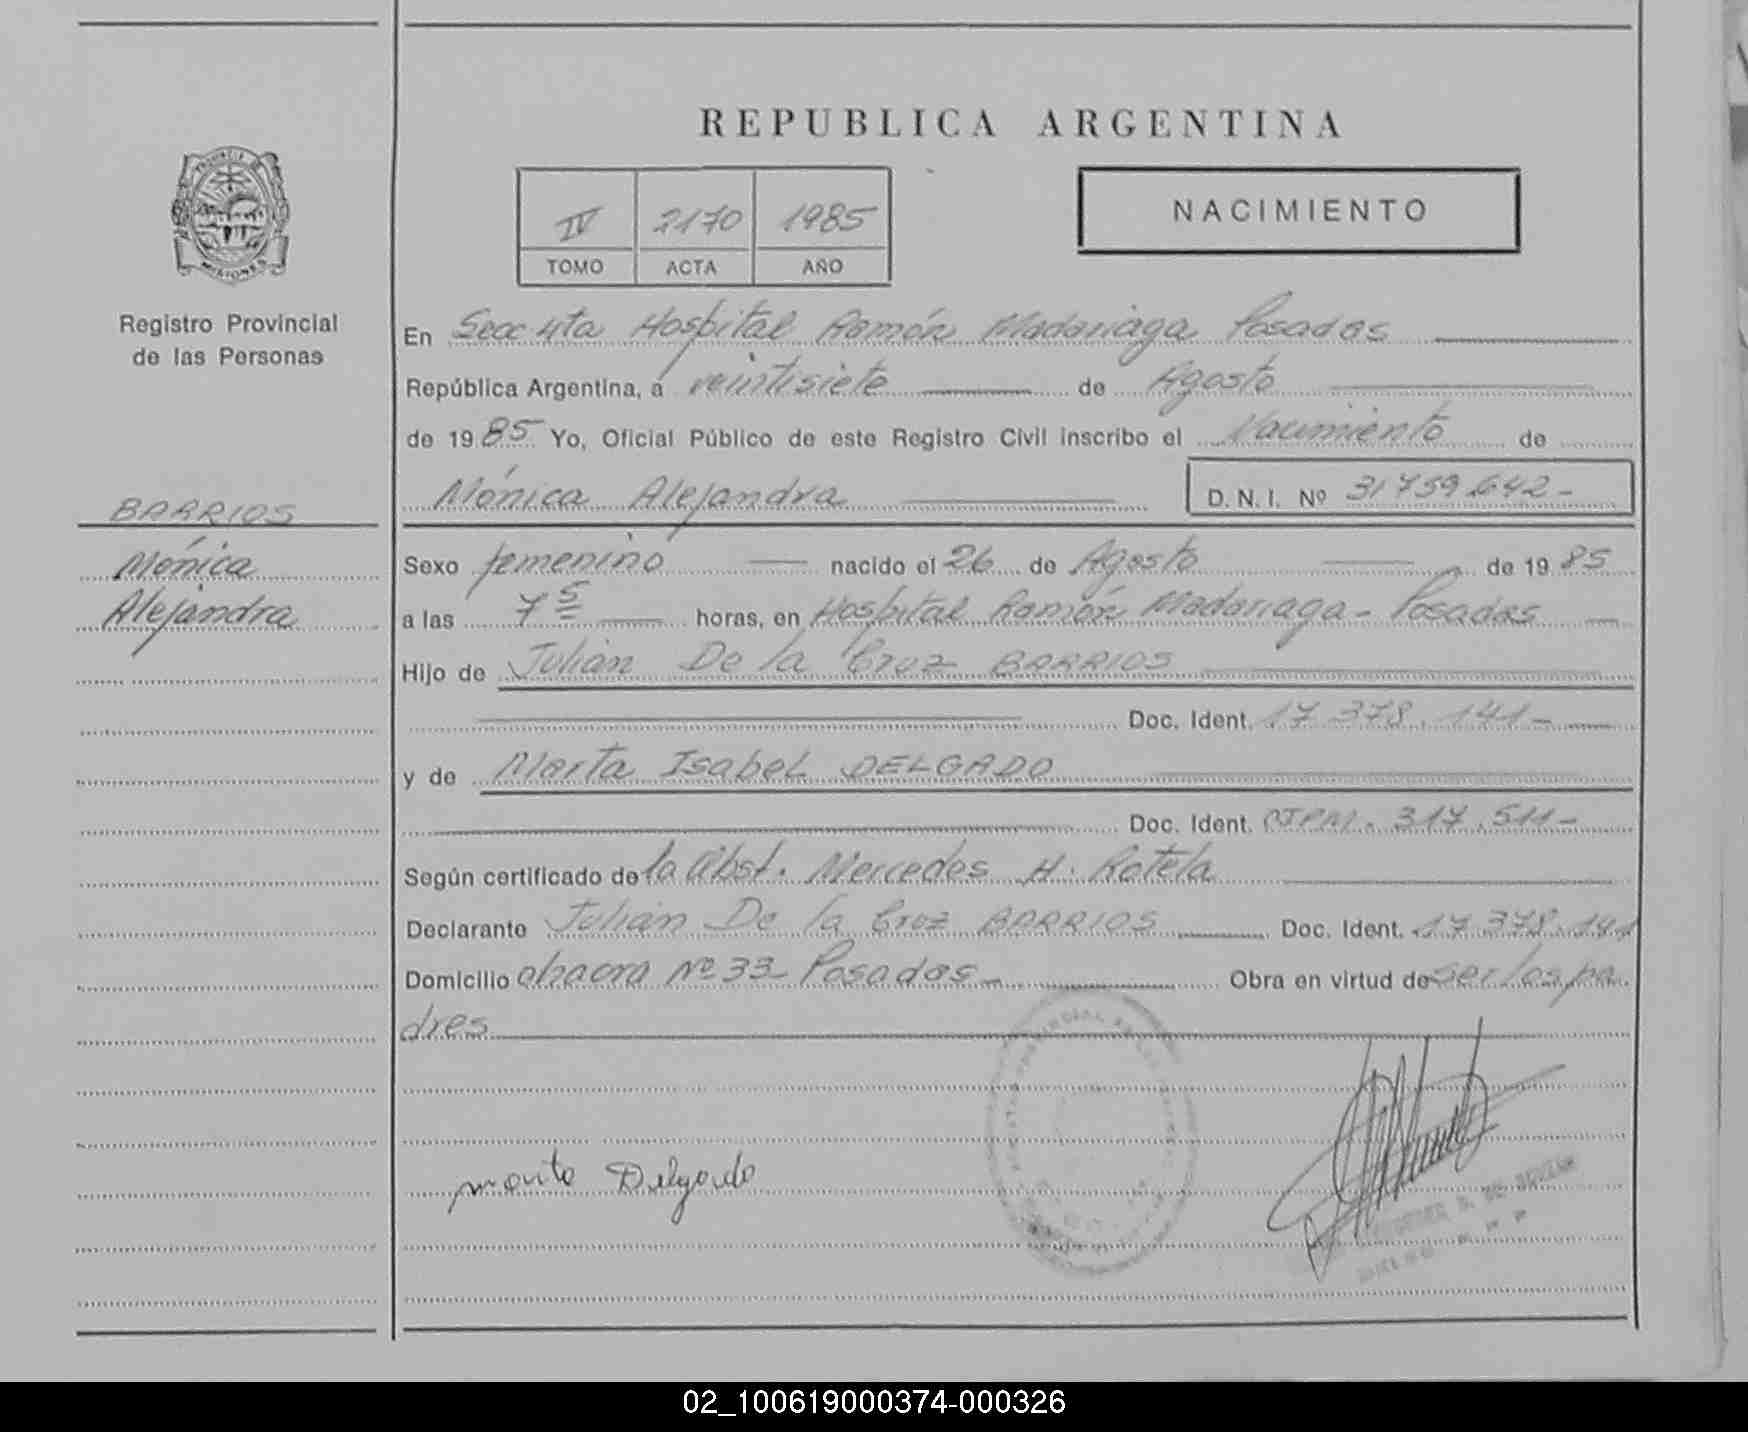 REPUBLICA ARGENTINA
PROVINCIA DE
MISIONES
Registro Provincial
de las Personas
IV 2170 1985
TOMO ACTA AÑO
NACIMIENTO
En Secc 4ta Hospital Ramón Madariaga Posadas
República Argentina, a veintisiete de Agosto
de 1985 Yo, Oficial Público de este Registro Civil inscribo el Nacimiento de
Mónica Alejandra D.N.I. Nº 31 759.642-
BARRIOS
Mónica
Alejandra
Sexo femenino nacido el 26 de Agosto de 1985
a las 7 5 horas, en Hospital Ramón Madariaga - Posadas
Hijo de Julián De la Cruz BARRIOS
Doc. Ident. 17 378.141-
y de Marta Isabel DELGADO
Doc. Ident. CIPM. 317.511-
Según certificado de la Obst. Mercedes H. Rotela
Declarante Julián De la Cruz BARRIOS Doc. Ident. 17.378.141
Domicilio chacra Nº 33 Posadas- Obra en virtud de ser los pa
dres
marta Delgado
02_100619000374-000326